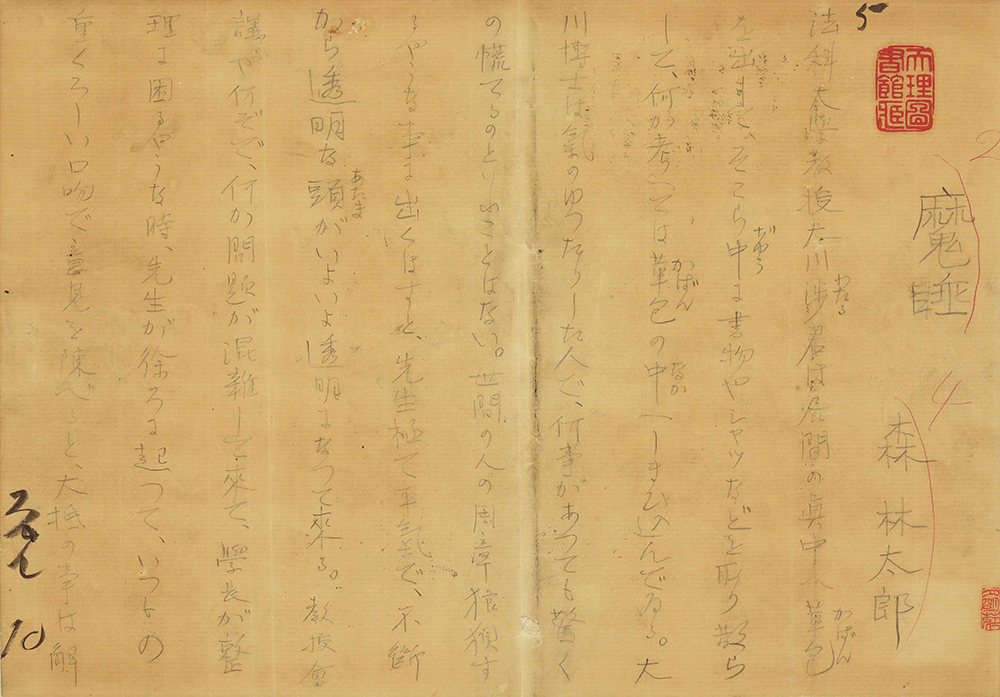 5
天理圖書館藏
2
魔睡
4
森林太郎
法科大學教授大川渉君は居間の眞中へ革包
わたる
かばん
を出して、そこら中に書物やシャツなどを取り散ら
ぢゆう
して、何か考へては革包の中へしまひ込んでゐる。大
かばん
なか
川博士は氣のゆつたりした人で、何事があつても驚く
の慌てるのといふことはない。世間の人の周章狼狽す
るやうな事に出くはすと、先生極て平氣で、不斷
から透明な頭がいよいよ透明になつて來る。教授會
あたま
議や何ぞで、何か問題が混雜して來て、學長が整
理に困るやうな時、先生が徐ろに起つて、いつもの
重くろしい口吻で意見を陳べると、大抵の事は解
10